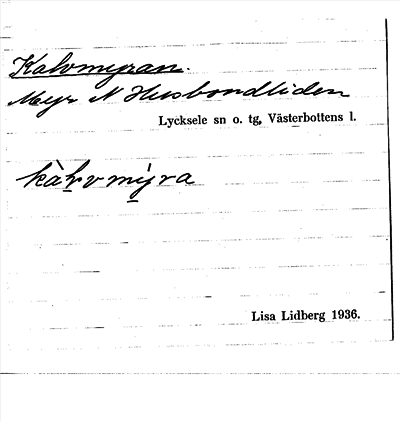 Kalvmyran.
Myr N Husbondliden
Lycksele sn o. tg, Västerbottens l.
kàl̠vmy̠ra
Lisa Lidberg 1936.